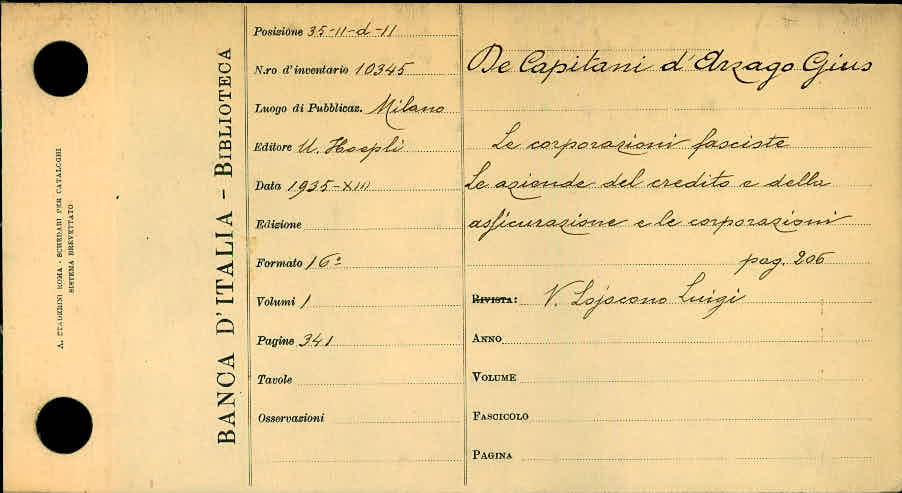 A. STADERINI ROMA - SCHEDARI PER CATALOGHI
SISTEMA BREVETTATO
BANCA D'ITALIA - BIBLIOTECA
Posizione 35-11-d-11
N.ro d'inventario 10345
Luogo di Pubblicaz. Milano
Editore U. Hoepli
Data 1935-XIII
Edizione
Formato 16º
Volumi 1
Pagine 341
Tavole
Osservazioni
De Capitani d'Arzago Gius
Le corporazioni fasciste
Le aziende del credito e della
assicurazione e le corporazioni
pag. 206
RIVISTA: V. Lojacono Luigi
ANNO
VOLUME
FASCICOLO
PAGINA